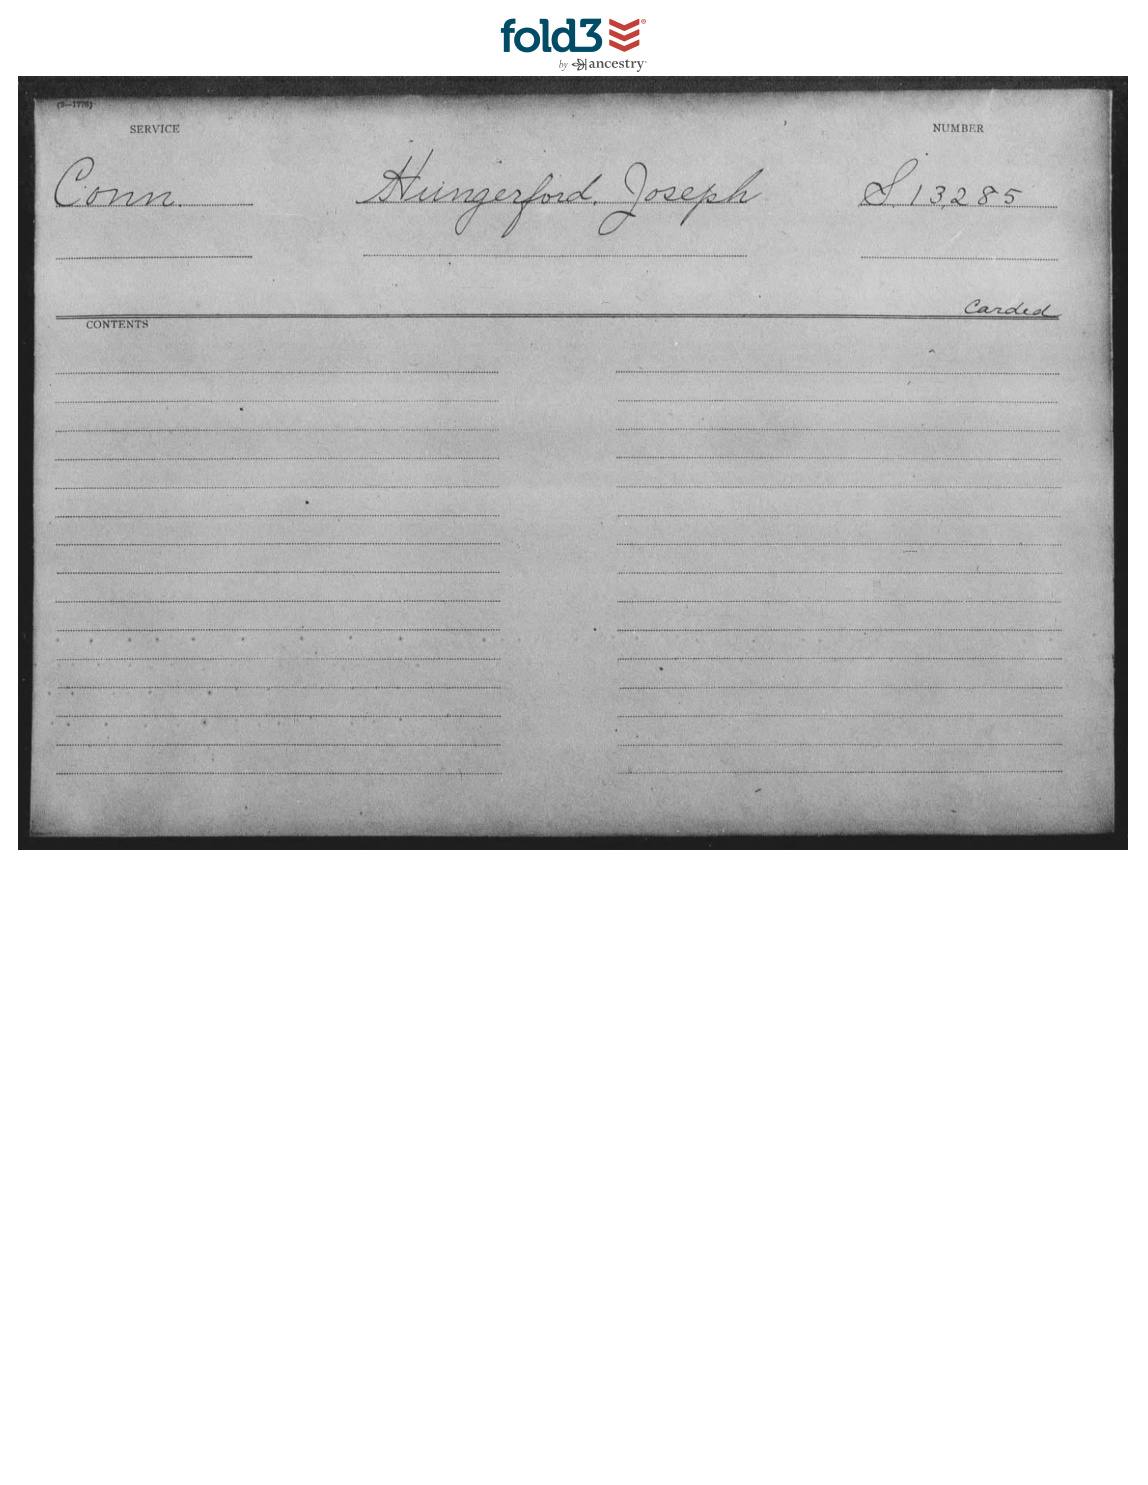 fold3
by ancestry
(3—1776)
SERVICE NUMBER
Conn. Hungerford, Joseph S. 13,285
Carded
CONTENTS